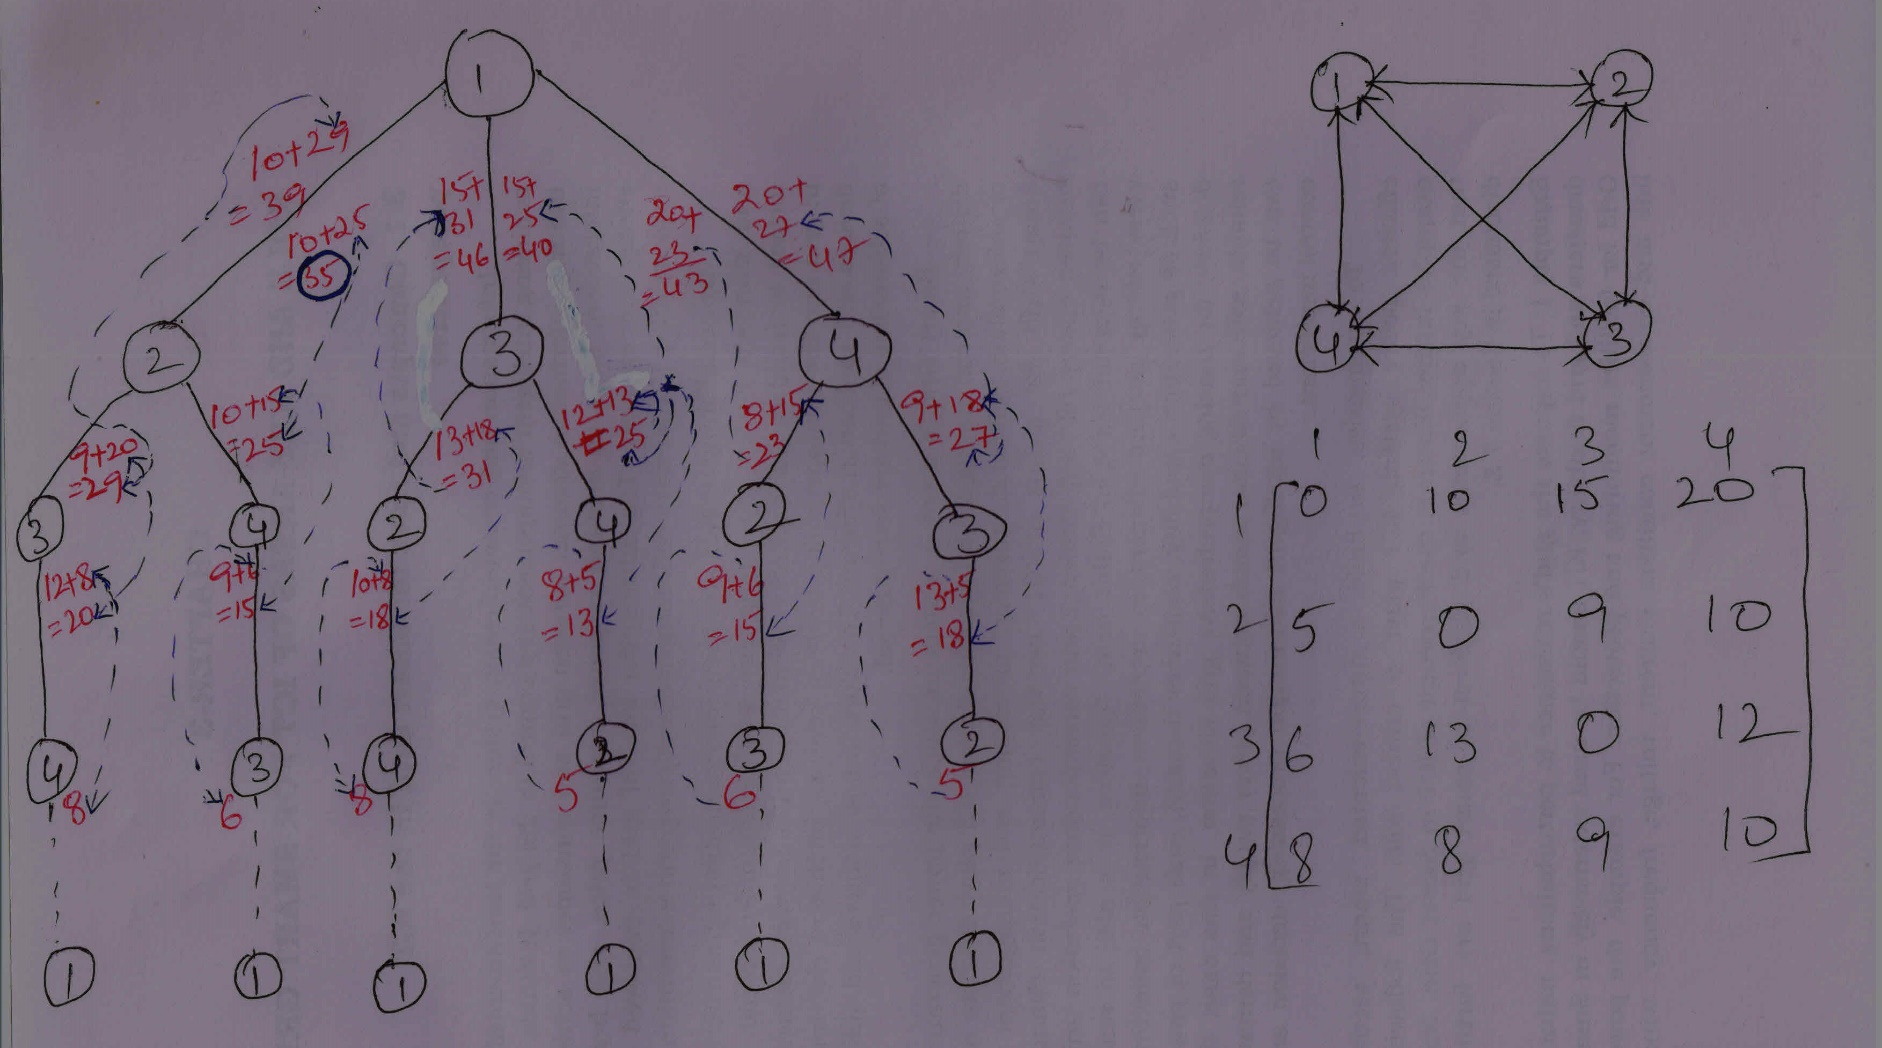 1
10+29
= 39
10+25
=35
15+
31
=46
15+
25
=40
20+
23
=43
20+
27
=47
2
3
4
9+20
=29
10+15
=25
13+18
=31
12+13
=25
8+15
=23
9+18
=27
3
4
2
4
2
3
12+8
=20
9+6
=15
10+8
=18
8+5
=13
9+6
=15
13+5
=18
4
3
4
2
3
2
8
6
8
5
6
5
1
1
1
1
1
1
1 2
4 3
1 2 3 4
1 0 10 15 20
2 5 0 9 10
3 6 13 0 12
4 8 8 9 10